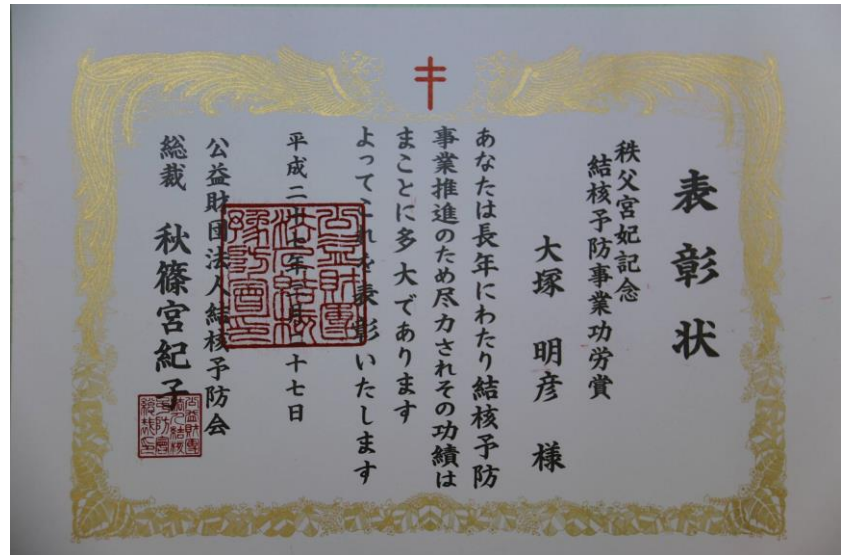 表彰状
秩父宮妃記念
結核予防事業功労賞
大塚 明彦 様
あなたは長年にわたり結核予防
事業推進のため尽力されその功績は
まことに多大であります
よってこれを表彰いたします
平成二十七年 月 十七日
公益財団法人結核予防会
総裁 秋篠宮紀子
公益財團
法人結核
豫防會印